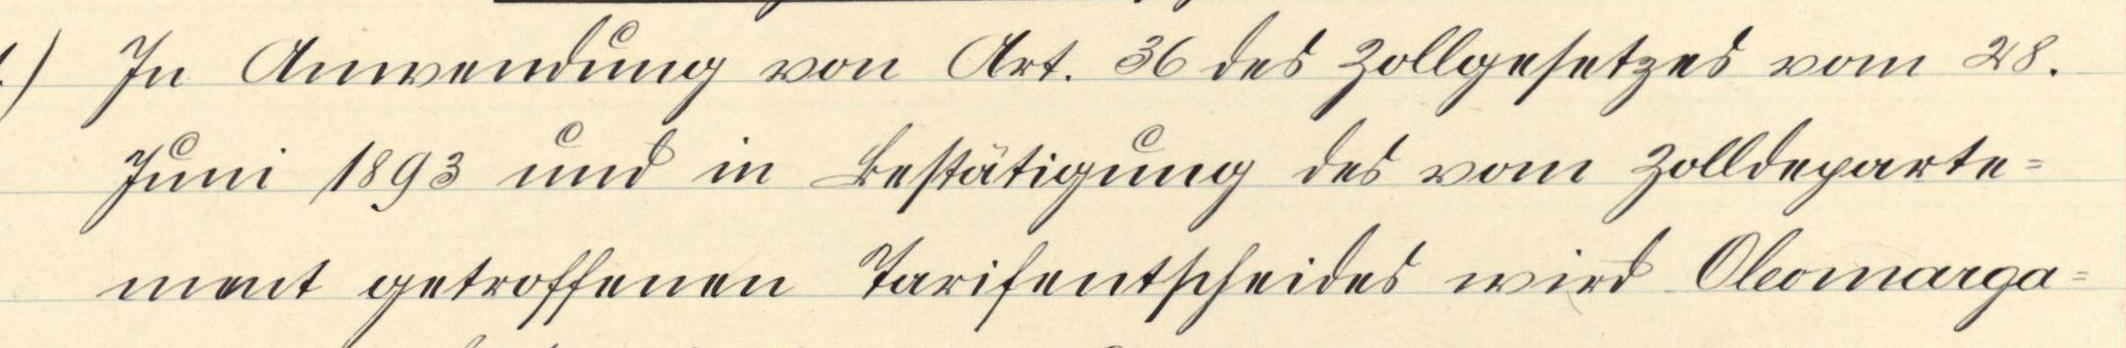 In Anwendung von Art. 36 des Zollgesetzes vom 28.
Juni 1893 und in Bestätigung des vom Zolldeparte=
ment getroffenen Tarifentscheides wird Oleomarga=